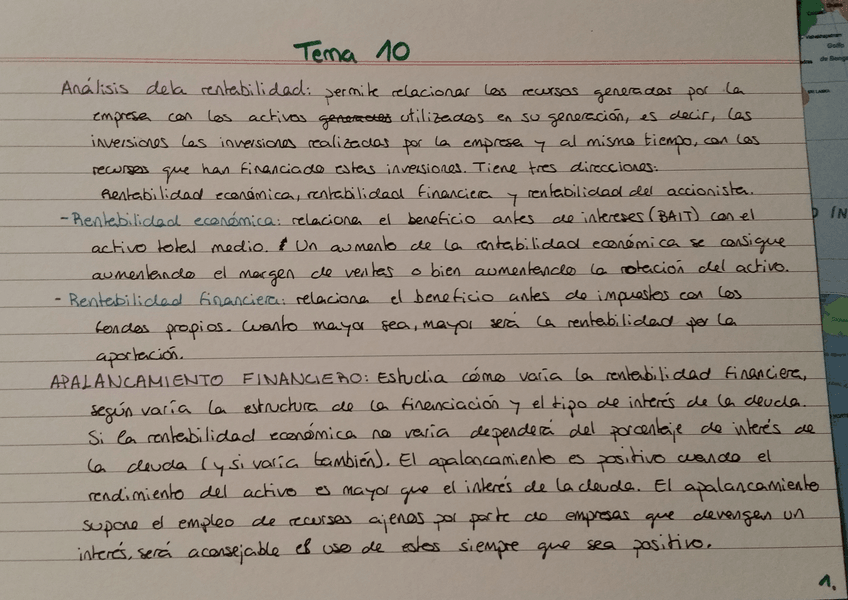 Tema 10
Análisis de la rentabilidad: permite relacionar los recursos generados por la
empresa con los activos generados utilizados en su generación, es decir, las
inversiones las inversiones realizadas por la empresa y al mismo tiempo, con los
recursos que han financiado estas inversiones. Tiene tres direcciones:
Rentabilidad económica, rentabilidad financiera y rentabilidad del accionista.
- Rentabilidad económica: relaciona el beneficio antes de intereses (BAIT) con el
activo total medio. Un aumento de la rentabilidad económica se consigue
aumentando el margen de ventas o bien aumentando la rotación del activo.
- Rentabilidad financiera: relaciona el beneficio antes de impuestos con los
fondos propios. Cuanto mayor sea, mayor será la rentabilidad por la
aportación.
APALANCAMIENTO FINANCIERO: Estudia cómo varía la rentabilidad financiera,
según varía la estructura de la financiación y el tipo de interés de la deuda.
Si la rentabilidad económica no varía dependerá del porcentaje de interés de
la deuda (y si varía también). El apalancamiento es positivo cuando el
rendimiento del activo es mayor que el interés de la deuda. El apalancamiento
supone el empleo de recursos ajenos por parte de empresas que devengan un
interés, será aconsejable el uso de estos siempre que sea positivo.
1.